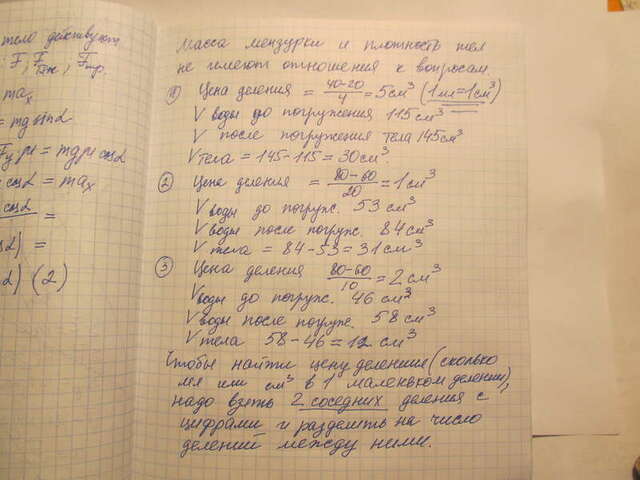 тело действуют
F, Fтяж, Fтр.
max
= mg sinα
Fу.μ = mgμ cosα
cosα = max
cosα =
α) =
α) (2)
Масса мензурки и плотность тел
не имеют отношения к вопросам.
1) Цена деления = 40-20/4 = 5 см³ (1мл = 1см³)
V воды до погружения 115 см³
V после погружения тела 145 см³
V тела = 145-115 = 30 см³.
2 Цена деления = 80-60/20 = 1 см³
V воды до погруж. 53 см³
V воды после погруж. 84 см³
V тела = 84-53 = 31 см³
3 Цена деления 80-60/10 = 2 см³
V воды до погруж. 46 см³
V воды после погруж. 58 см³
V тела 58-46 = 12 см³
Чтобы найти цену деления (сколько
мл или см³ в 1 маленьком делении),
надо взять 2 соседних деления с
цифрами и разделить на число
делений между ними.